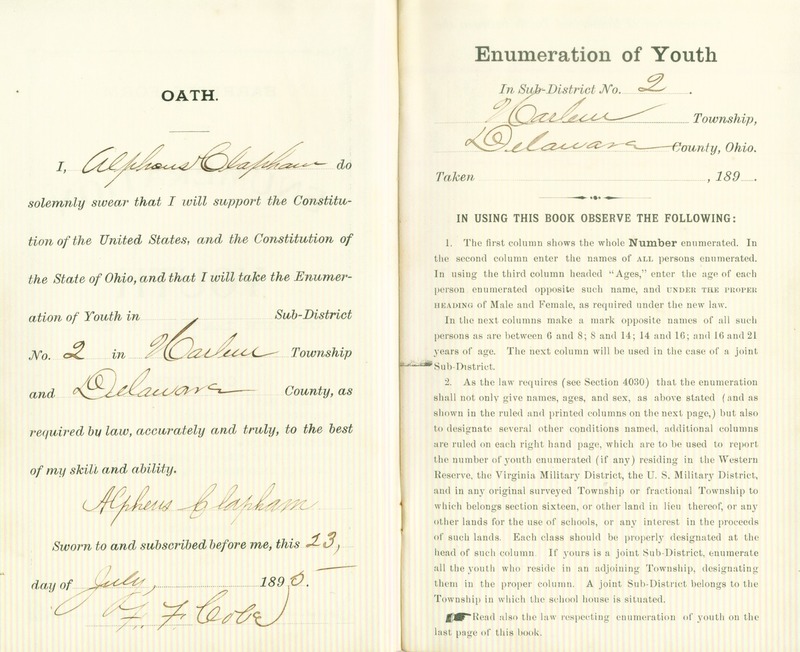 OATH.
I, Alpheus Clapham do
solemnly swear that I will support the Constitu-
tion of the United States, and the Constitution of
the State of Ohio, and that I will take the Enumer-
ation of Youth in Sub-District
No. 2 in Harlem Township
and Delaware County, as
required by law, accurately and truly, to the best
of my skill and ability.
Alpheus Clapham
Sworn to and subscribed before me, this 23,
day of July, 1895.
F. F. Cobe
Enumeration of Youth
In Sub-District No. 2.
Harlem Township,
Delaware County, Ohio.
Taken , 189 .
IN USING THIS BOOK OBSERVE THE FOLLOWING:
1. The first column shows the whole Number enumerated. In
the second column enter the names of ALL persons enumerated.
In using the third column headed "Ages," enter the age of each
person enumerated opposite such name, and UNDER THE PROPER
HEADING of Male and Female, as required under the new law.
In the next columns make a mark opposite names of all such
persons as are between 6 and 8; 8 and 14; 14 and 16; and 16 and 21
years of age. The next column will be used in the case of a joint
Sub-District.
2. As the law requires (see Section 4030) that the enumeration
shall not only give names, ages, and sex, as above stated (and as
shown in the ruled and printed columns on the next page,) but also
to designate several other conditions named, additional columns
are ruled on each right hand page, which are to be used to report
the number of youth enumerated (if any) residing in the Western
Reserve, the Virginia Military District, the U. S. Military District,
and in any original surveyed Township or fractional Township to
which belongs section sixteen, or other land in lieu thereof, or any
other lands for the use of schools, or any interest in the proceeds
of such lands. Each class should be properly designated at the
head of such column. If yours is a joint Sub-District, enumerate
all the youth who reside in an adjoining Township, designating
them in the proper column. A joint Sub-District belongs to the
Township in which the school house is situated.
☛Read also the law respecting enumeration of youth on the
last page of this book.